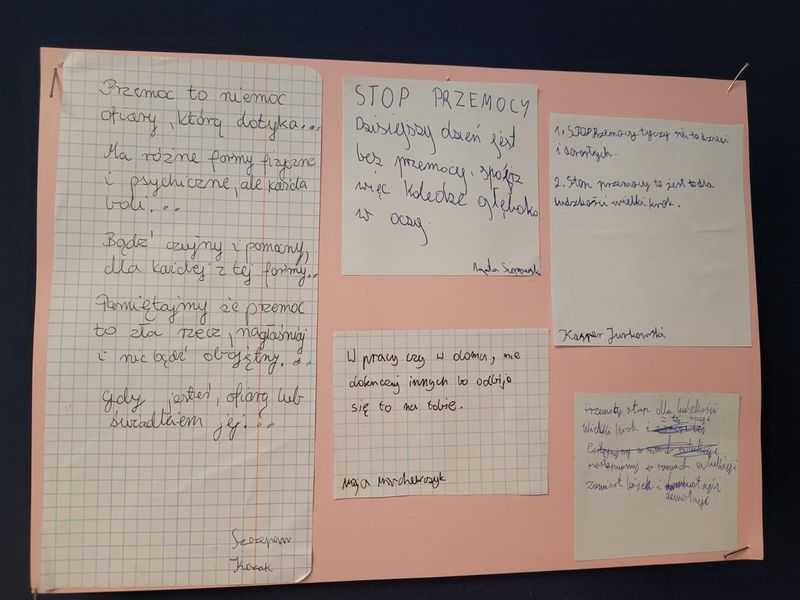 Przemoc to niemoc
ofiary, którą dotyka...
Ma różne formy fizyczne
i psychiczne, ale każda
boli...
Bądź czujny i pomocny,
dla każdej z tej formy...
Pamiętajmy że przemoc
to zła rzecz, nagłaśniaj
i nie bądź obojętny...
Gdy jesteś, ofiarą lub
świadkiem jej...
Szczepan
Kozak
STOP PRZEMOCY
Dzisiejszy dzień jest
bez przemocy, spójrz
więc koledze głęboko
w oczy.
W pracy czy w domu, nie
dokuczaj innych bo odbije
się to na tobie.
Maja
1. STOP Przemocy tyczy się to dzieci
i dorosłych.
2. Ston przemocy to jest to dla
ludzkości wielki krok.
Kasper Jurkowski
Przemocy stop dla ludzkości
Wielki krok i z tej racji
w ramach edukacji
zamiast bójek i